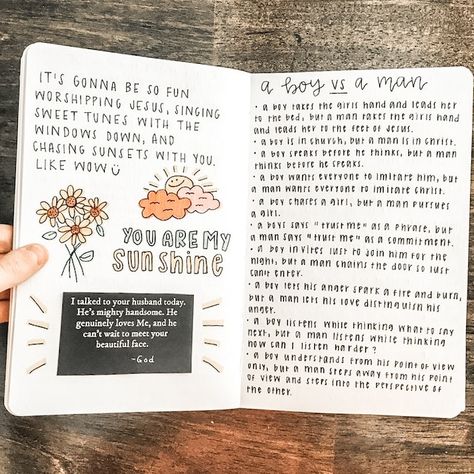 IT'S GONNA BE SO FUN
WORSHIPPING JESUS, SINGING
SWEET TUNES WITH THE
WINDOWS DOWN, AND
CHASING SUNSETS WITH YOU.
LIKE WOW
YOU ARE MY
SUNSHINE
I talked to your husband today.
He's mighty handsome. He
genuinely loves Me, and he
can't wait to meet your
beautiful face.
-God
a boy vs a man
• a boy takes the girls hand and leads her
to the bed, but a man takes the girls hand
and leads her to the feet of Jesus.
• a boy is in church, but a man is in Christ.
• a boy speaks before he thinks, but a man
thinks before he speaks.
• a boy wants everyone to imitate him, but a
man wants everyone to imitate Christ.
• a boy chases a girl, but a man pursues
a girl.
• a boys says "trust me" as a phrase, but
a man says "trust me" as a commitment.
• a boy invites lust to join him for the
night, but a man chains the door so lust
can't enter.
• a boy lets his anger spark a fire and burn,
but a man lets his love distinguish his
anger.
• a boy listens while thinking what to say
next, but a man listens while thinking
how can I listen harder?
• a boy understands from his point of view
only, but a man steps away from his point
of view and steps into the perspective of
the other.